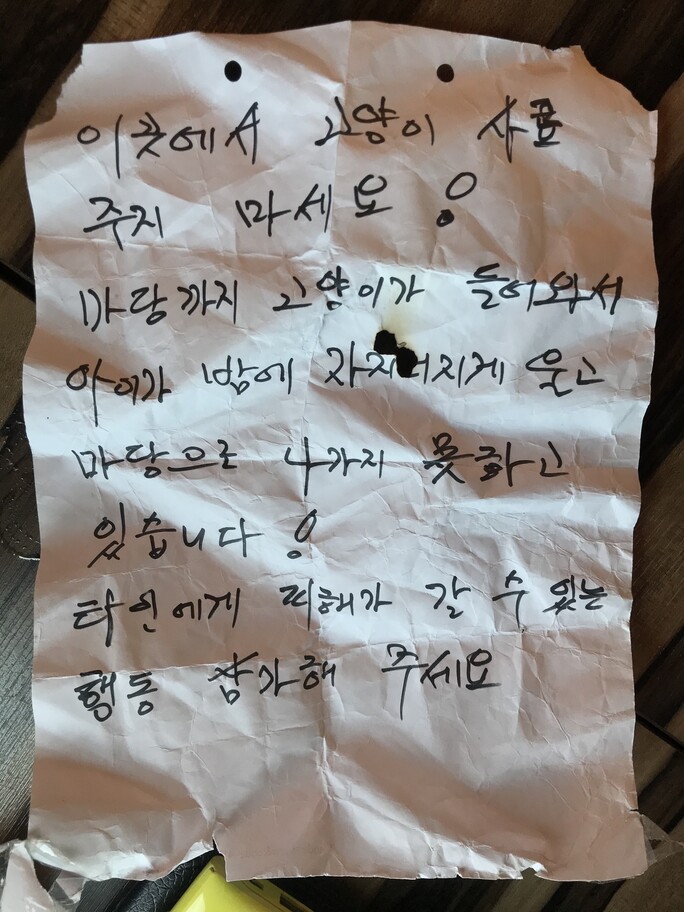 이곳에서 고양이 사료
주지 마세요!
마당까지 고양이가 들어와서
아이가 밤에 자지러지게 울고
마당으로 나가지 못하고
있습니다!
타인에게 피해가 갈 수 있는
행동 삼가해 주세요